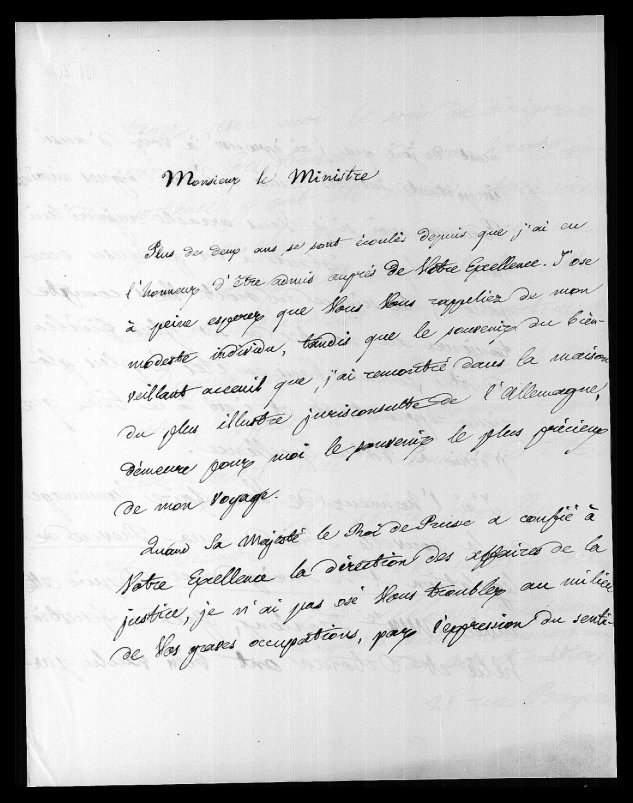 Monsieur le Ministre
Plus de deux ans se sont écoulés depuis que j'ai eu
l'honneur d'être admis auprès de Votre Excellence. J'ose
à peine espérer que Vous Vous rappeliez de mon
modeste individu, tandis que le souvenir du bien-
veillant acceuil que j'ai remontré dans la maison
du plus illustre jurisconsulte de l'Allemagne,
démeure pour moi le souvenir le plus précieux
de mon voyage.
Quand Sa Majesté le Roi de Prusse a confié à
Votre Excellence la direction des affaires de la
justice, je n'ai pas osé Vous troubler au milieu
de Vos graves occupations, par l'expression du senti-